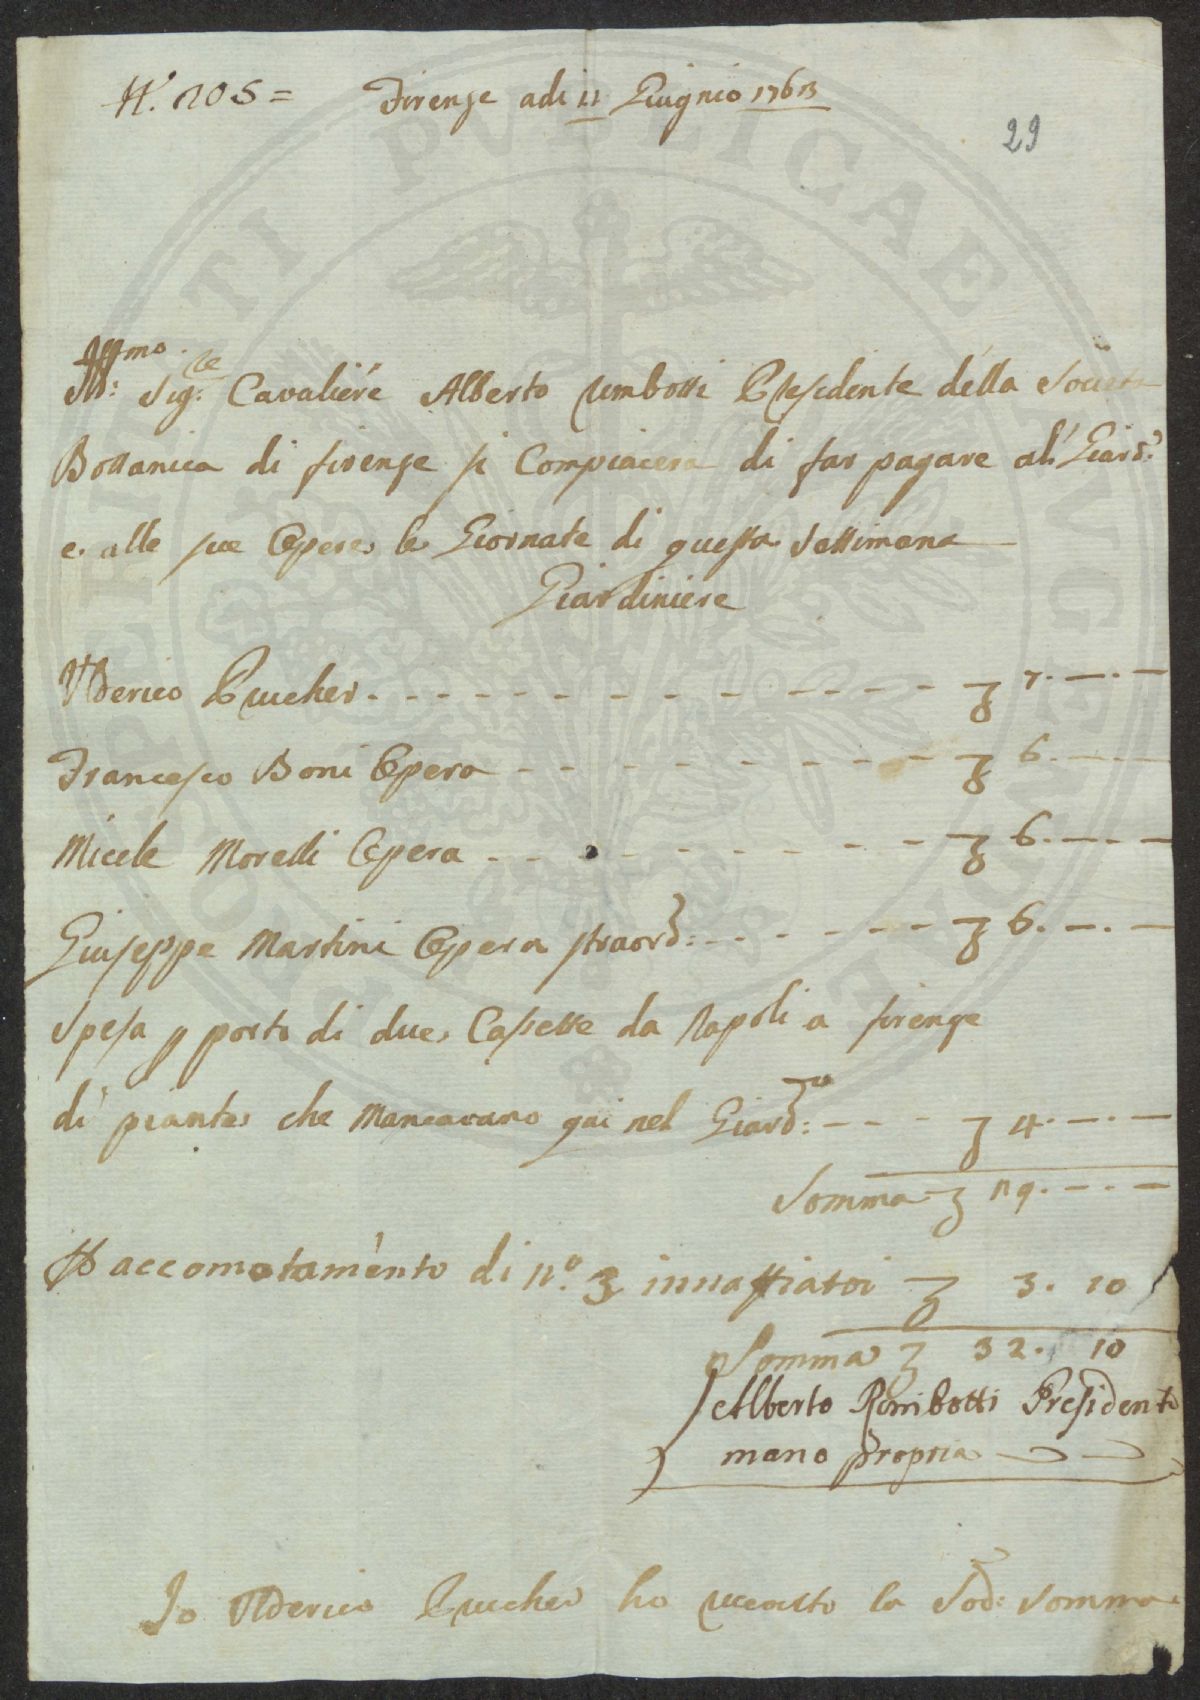 N.° 205 = Firenze adi 11 Giugnio 1763
29
Ill:mo Sig:re Cavaliére Alberto Rimbotti Presidente délla Societa
Bottanica di firenze si Compiacera di far pagare al' Giard:e
e alle sue Opere le Giornate di questa Settimana
Giardiniere
Ulderico Prucher - - - - - - - - £ 7. — . —
Francesco Boni Opera - - - - - - £ 6. — . —
Micele Morelli Opera - - - - - - £ 6. — . —
Giuseppe Martini Opera straord: - - - - £ 6. — . —
Spesa p porto di due Casette da Napoli a firenze
di piante che Mancavano qui nel Giard:o - - - £ 4. — . —
Somma £ 29. — . —
P accomotaménto di n.° 3 innaffiatoi £ 3. 10
Somma £ 32. 10
Alberto Rimbotti Presidente
mano propria
Io Ulderico Prucher ho riceuto la Sod:a Somma
PROSPERITATI PVBLICAE AVGENDAE